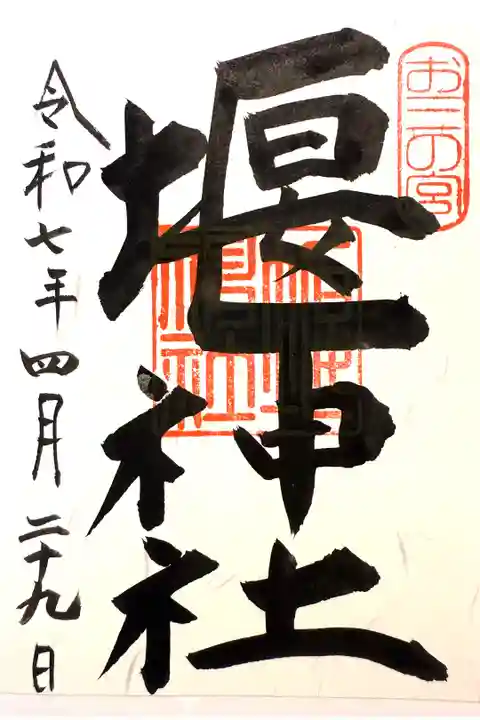 お三の宮
堰神社
令和七年四月二十九日